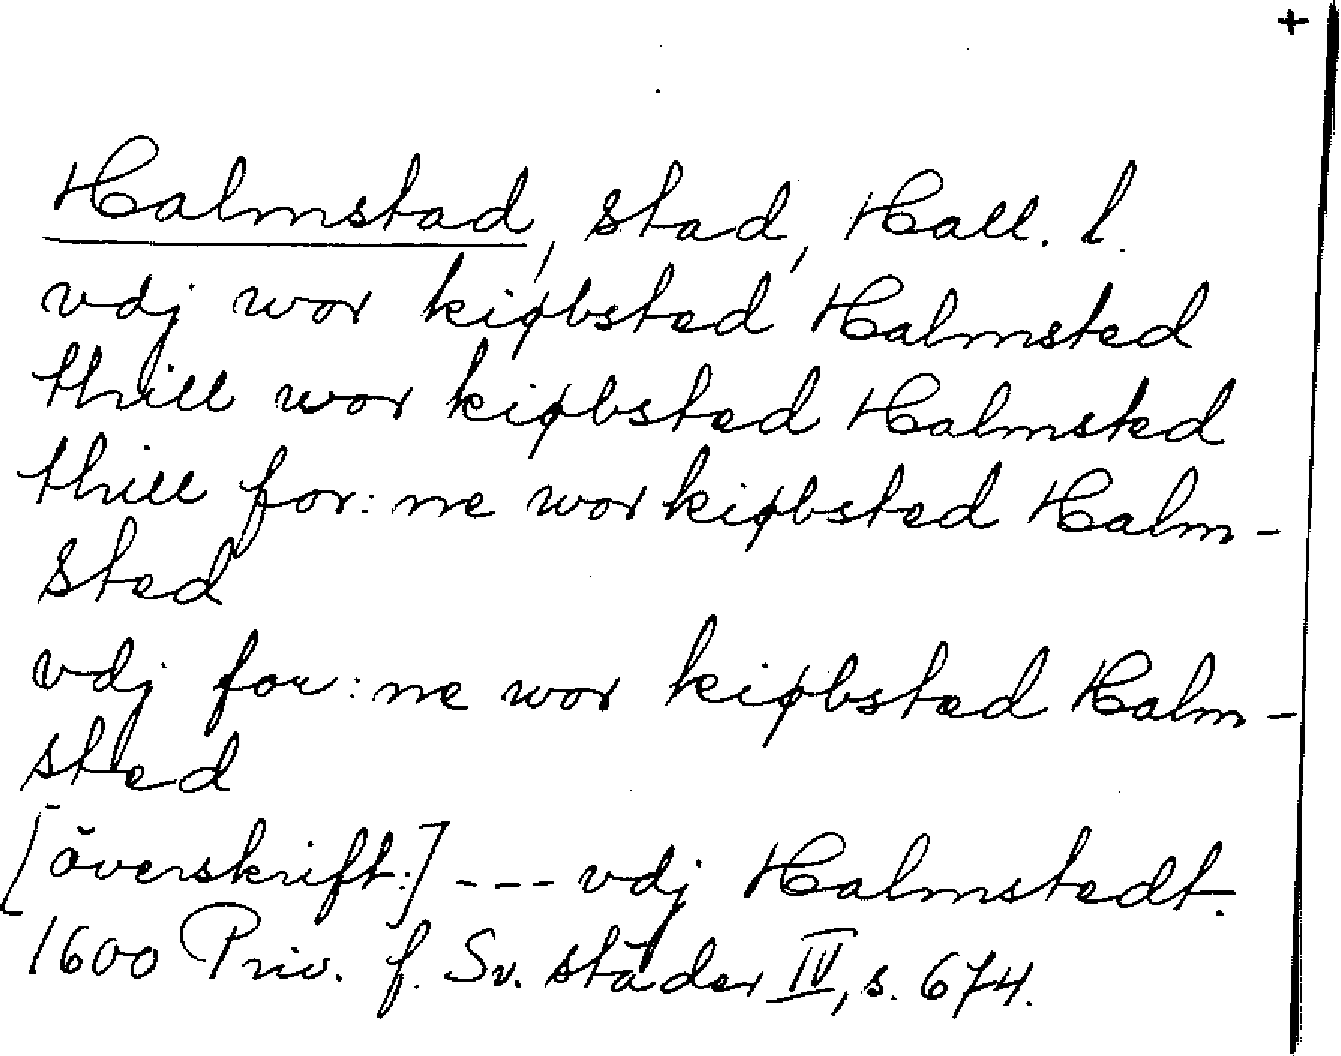 +
Halmstad, stad, Hall. l.
vdj wor kiøbsted Halmsted
thill wor kiøbsted Halmsted
thill for:ne wor kiøbsted Halm-
sted
vdj for:ne wor kiøbsted Halm-
sted
[överskrift:] --- vdj Halmstedt.
1600 Priv. f. Sv. städer IV, s. 674.